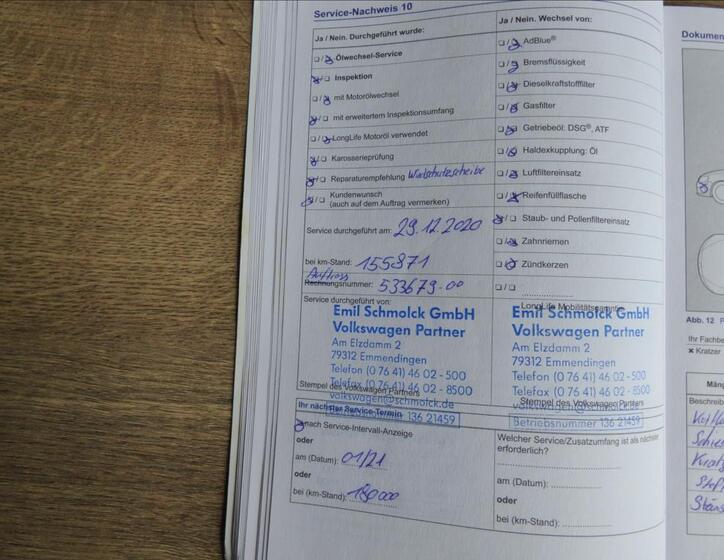 Service-Nachweis 10
Ja / Nein. Durchgeführt wurde:
Ölwechsel-Service
Inspektion
mit Motorölwechsel
mit erweitertem Inspektionsumfang
LongLife Motoröl verwendet
Karosserieprüfung
Reparaturempfehlung Windschutzscheibe
Kundenwunsch
(auch auf dem Auftrag vermerken)
Service durchgeführt am: 29.12.2020
bei km-Stand: 155871
Auftrags
Rechnungsnummer: 533679-00
Service durchgeführt von:
Emil Schmolck GmbH
Volkswagen Partner
Am Elzdamm 2
79312 Emmendingen
Telefon (0 76 41) 46 02 - 500
Telefax (0 76 41) 46 02 - 8500
Stempel des Volkswagen Partners
volkswagen@schmolck.de
136 21459
Ihr nächster Service-Termin
nach Service-Intervall-Anzeige
oder
am (Datum): 01/21
oder
bei (km-Stand):
Ja / Nein. Wechsel von:
AdBlue®
Bremsflüssigkeit
Dieselkraftstofffilter
Gasfilter
Getriebeöl: DSG®, ATF
Haldexkupplung: Öl
Luftfiltereinsatz
Reifenfüllflasche
Staub- und Pollenfiltereinsatz
Zahnriemen
Zündkerzen
LongLife Mobilitätsgarantie
Emil Schmolck GmbH
Volkswagen Partner
Am Elzdamm 2
79312 Emmendingen
Telefon (0 76 41) 46 02 - 500
Telefax (0 76 41) 46 02 - 8500
Stempel des Volkswagen Partners
Betriebsnummer 136 21459
Welcher Service/Zusatzumfang ist als nächster
erforderlich?
am (Datum):
oder
bei (km-Stand):
Dokumen
Abb. 12
Ihr Fachbe
× Kratzer
Män
Beschreib